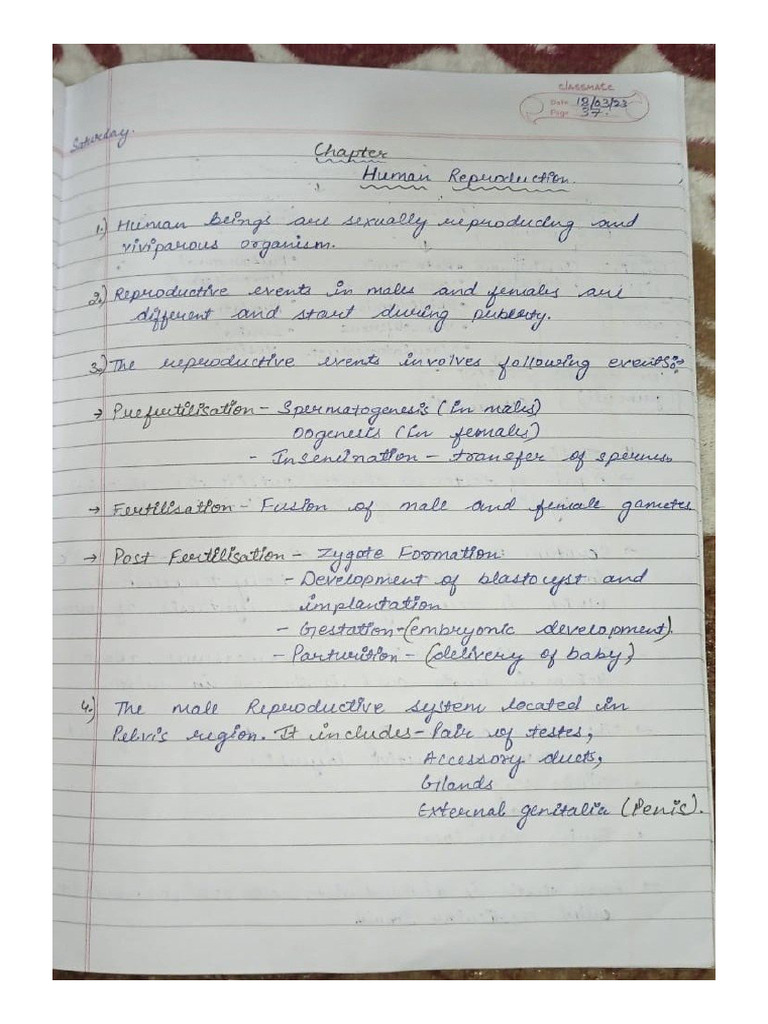 classmate
Date 18/03/23
Page 37.
Saturday.
Chapter
Human Reproduction.
1.) Human beings are sexually reproducing and
viviparous organism.
2.) Reproductive events in males and females are
different and start during puberty.
3.) The reproductive events involves following events:-
→ Prefertilisation - Spermatogenesis (in males)
Oogenesis (in females)
- Insemination - transfer of sperms
→ Fertilisation - Fusion of male and female gametes
→ Post Fertilisation - Zygote Formation
- Development of blastocyst and
implantation
- Gestation - (embryonic development).
- Parturition - (delivery of baby)
4.) The male Reproductive system located in
Pelvis region. It includes - Pair of testes,
Accessory ducts,
Glands
External genitalia (Penis).